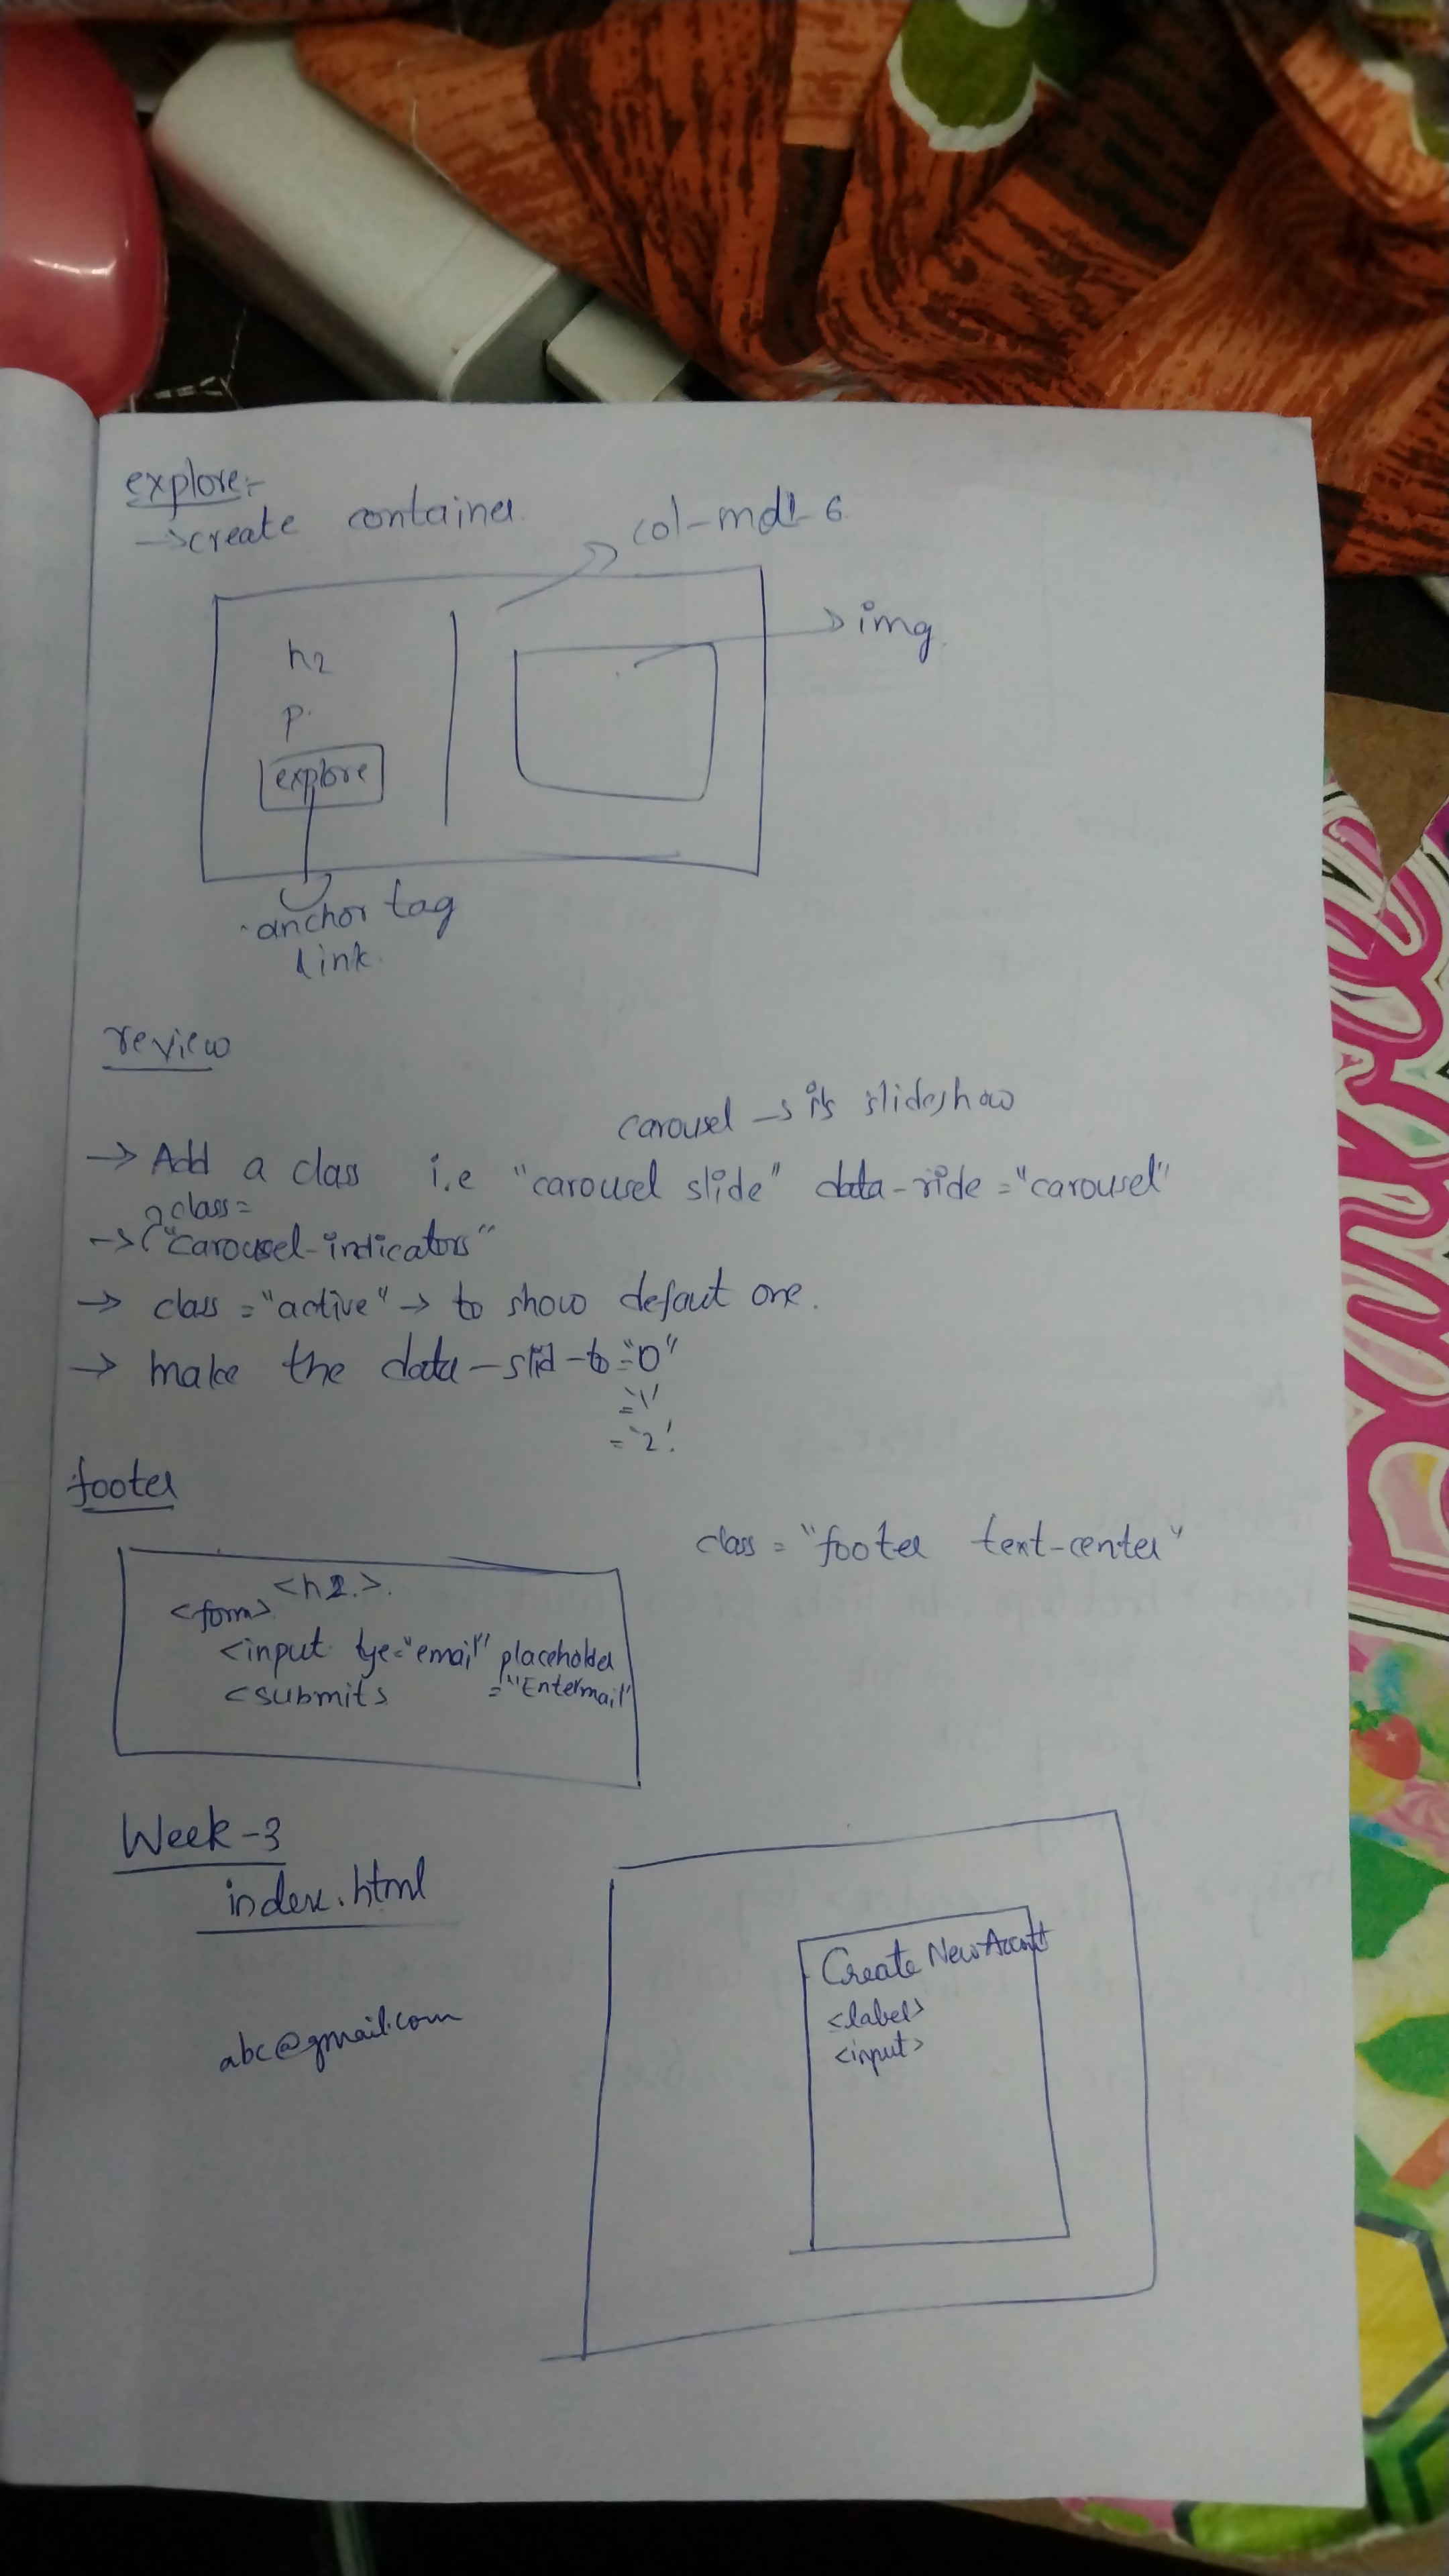 explore:-
→ create container
col-md-6
img
h2
p
explore
anchor tag
link
review
carousel → it's slideshow
→ Add a class i.e "carousel slide" data-ride="carousel"
class=
→ "carousel-indicators"
→ class="active" → to show defaut one.
→ make the data-slid-to="0"
="1"
="2"
footer
class = "footer text-center"
<h2>
<form>
<input tye="email" placeholder
="Entermail"
<submits
Week-3
index.html
Create New Account
<label>
<input>
abc@gmail.com